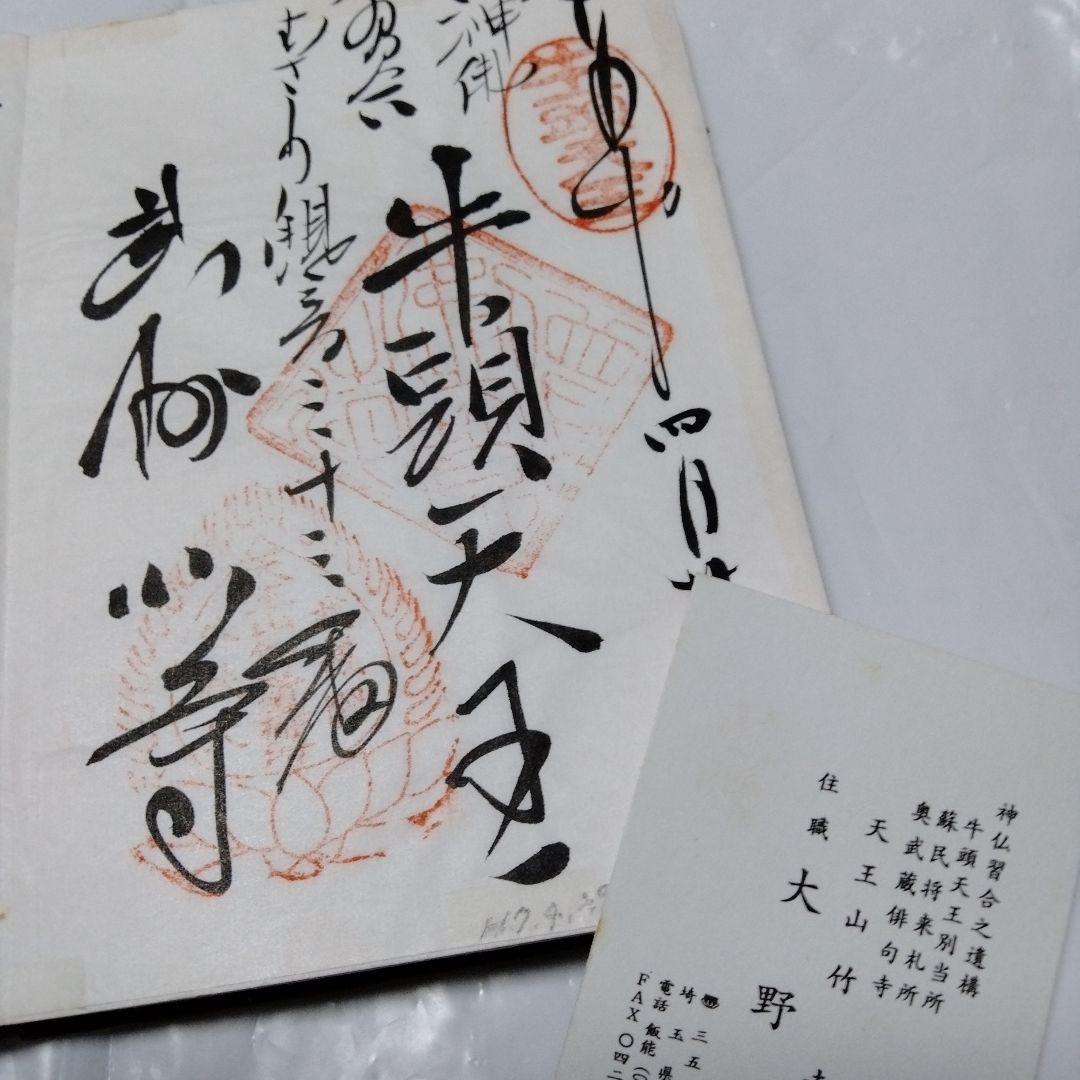 四月
牛頭天王
神仏
習合
むさしの観音三十三番
武州
竹寺
H17.4.29
神仏習合之遺構
牛頭天王別当所
蘇民将来札所
奥武蔵俳句寺
天王山
竹
住職 大野
三五
埼玉県
電話 飯能(0
FAX〇四二